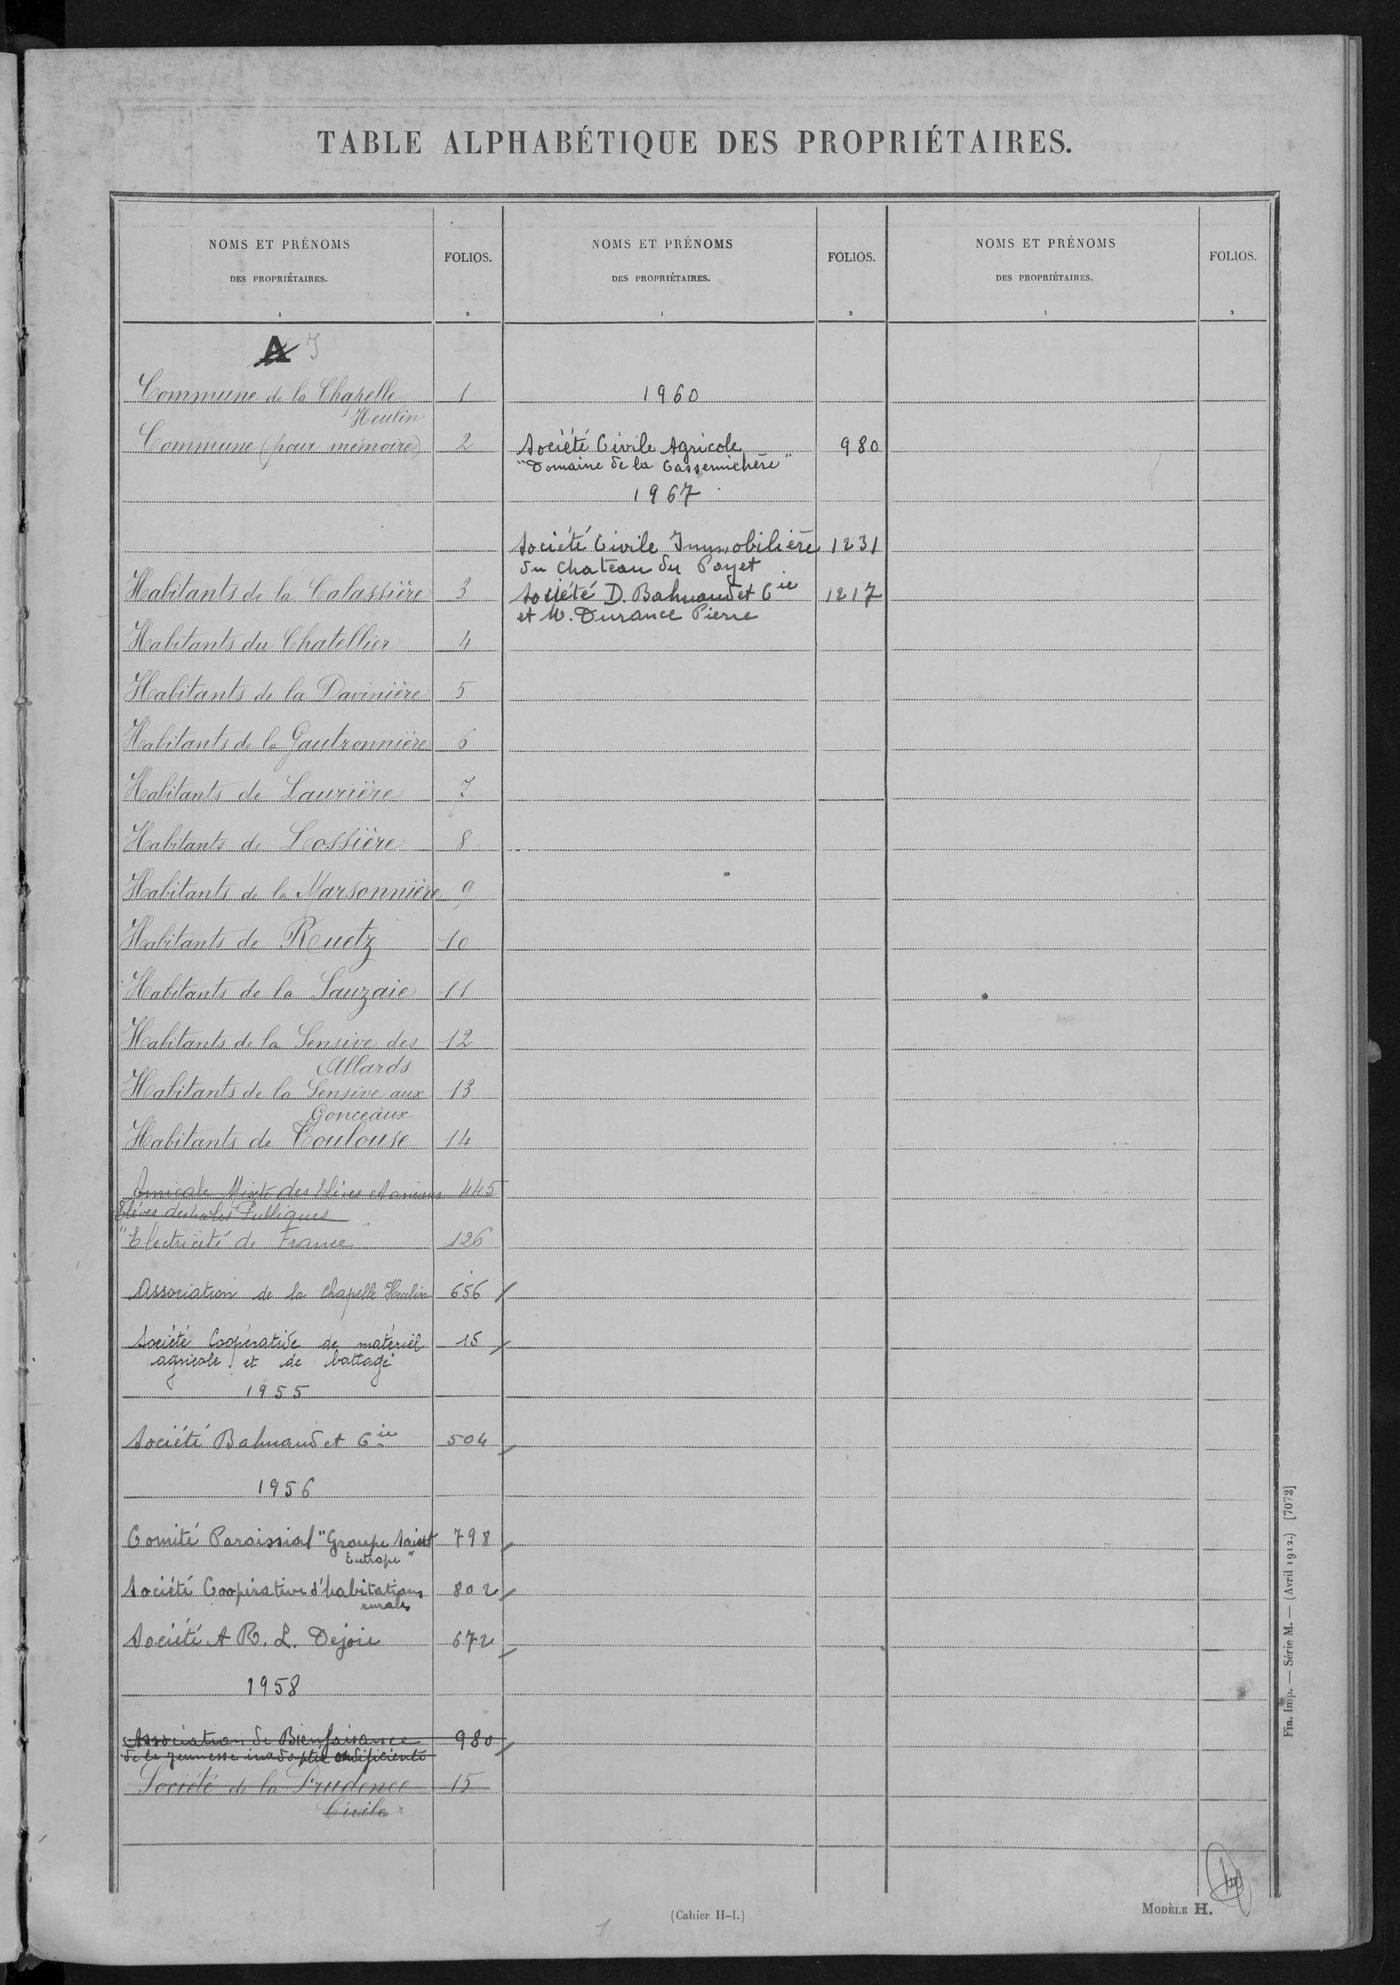 TABLE ALPHABÉTIQUE DES PROPRIÉTAIRES.
NOMS ET PRÉNOMS
DES PROPRIÉTAIRES.
1
FOLIOS.
2
NOMS ET PRÉNOMS
DES PROPRIÉTAIRES.
1
FOLIOS.
2
NOMS ET PRÉNOMS
DES PROPRIÉTAIRES.
1
FOLIOS.
2
A
Commune de la Chapelle 1
Heulin
Commune (pour mémoire) 2
Habitants de la Calassière 3
Habitants du Chatellier 4
Habitants de la Davinière 5
Habitants de la Gautronnière 6
Habitants de Laurière 7
Habitants de Lossière 8
Habitants de la Marsonnière 9
Habitants de Ruetz 10
Habitants de la Sauzaie 11
Habitants de la Sensive des 12
Allards
Habitants de la Sensive aux 13
Gonceaux
Habitants de Toulouse 14
Amicale Mixte des Elèves et anciens 445
Elèves des Ecoles Publiques
"Electricité de France 126
Association de la Chapelle Heulin 656
Société Coopérative de matériel 15
agricole et de battage
1955
Société Bahuaud et Cie 504
1956
Comité Paroissial "Groupe Saint 798
Eutrope"
Société Coopérative d'habitations 802
rurales
Société A R. L. Dejoie 672
1958
Association de Bienfaisance 980
de la jeunesse inadaptée et déficiente
Société de la Prudence 15
Civile
1960
Société Civile Agricole 980
"Domaine de la Cassemichère"
1967
Société Civile Immobilière 1231
du Chateau du Poyet
Société D. Bahuaud et Cie 1217
et M. Durance Pierre
Fin. Imp. — Série M. — (Avril 1912.) [7072]
(Cahier H-I.)
MODÈLE H.